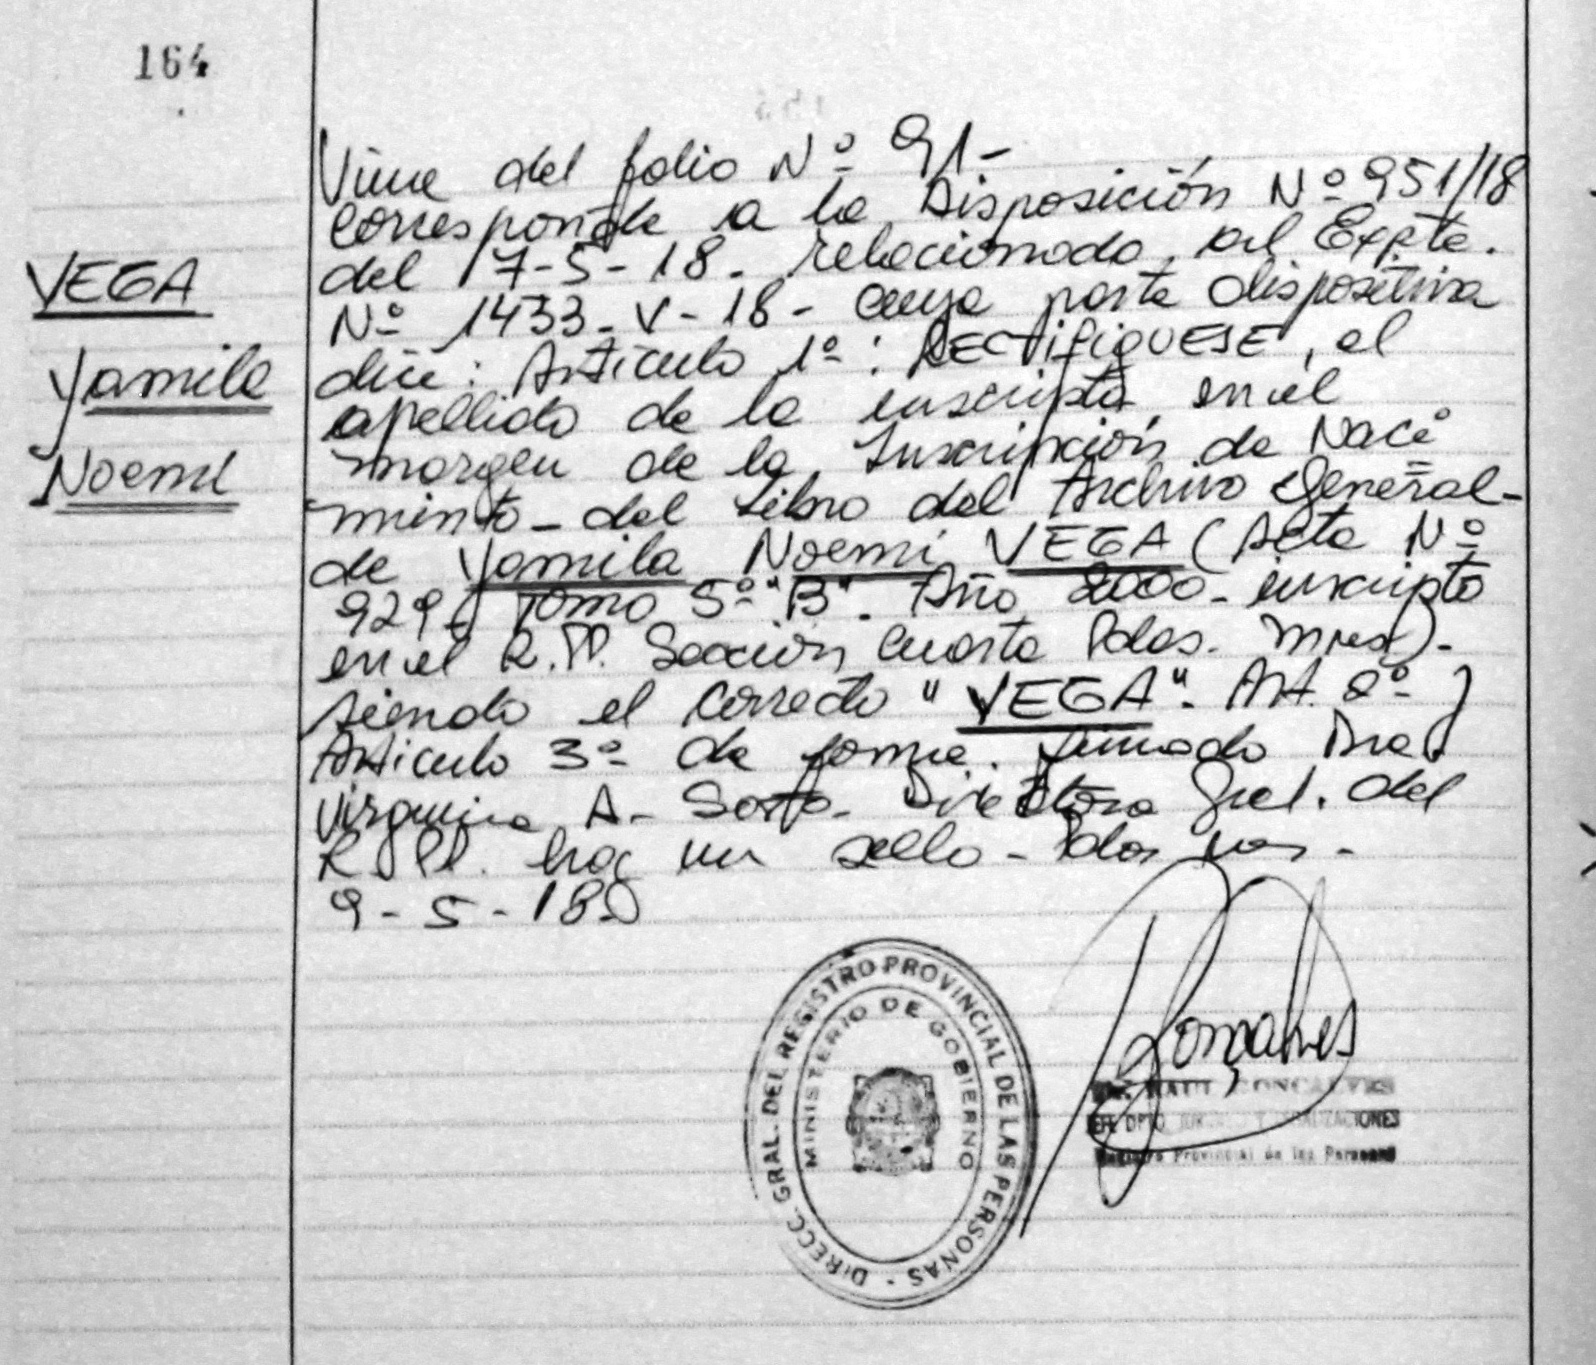 164
VEGA
Yamila
Noemí
Viene del folio Nº 91-
Corresponde a la Disposición Nº 951/18
del 17-5-18. relacionado al Expte.
Nº 1433-V-18- cuya parte dispositiva
dice: Artículo 1º: RECTIFIQUESE, el
apellido de la inscripta en el
margen de la Inscripción de Naci
miento - del Libro del Archivo General-
de Yamila Noemí VEGA (Acta Nº
929, Tomo 5º "B". Año 2000- inscripto
en el R.PP. Sección Cuarta Pdas. Mnes).
siendo el Correcto "VEGA". Art. 2º y
Artículo 3º de forma. Firmado Dra.
Virginia A. Directora Gral. del
R.PP. hay un sello - Pdas
9-5-18.
DIRECC. GRAL. DEL REGISTRO PROVINCIAL DE LAS PERSONAS -
MINISTERIO DE GOBIERNO
Gonçalves
RAUL GONCALVES
DPTO Y
Registro Provincial de las Personas